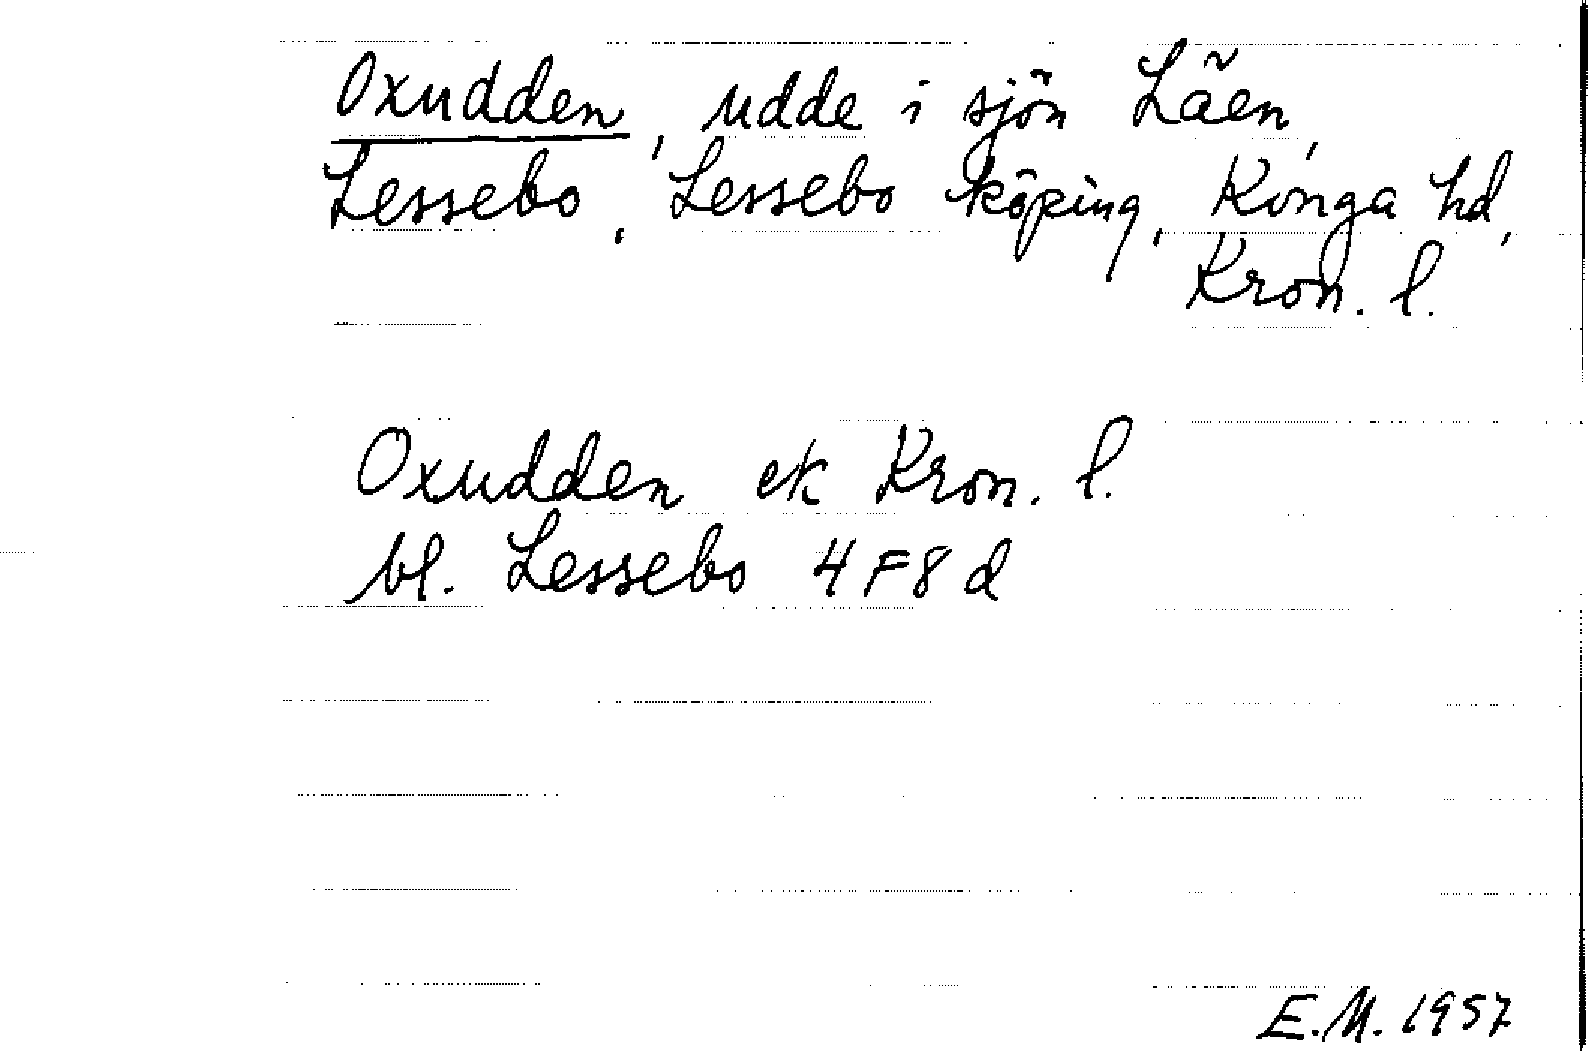 Oxudden, udde i sjön Läen,
Lessebo, Lessebo köping, Konga hd,
Kron. l.
Oxudden ek Kron. l.
bl. Lessebo 4F8d
E.M. 1957